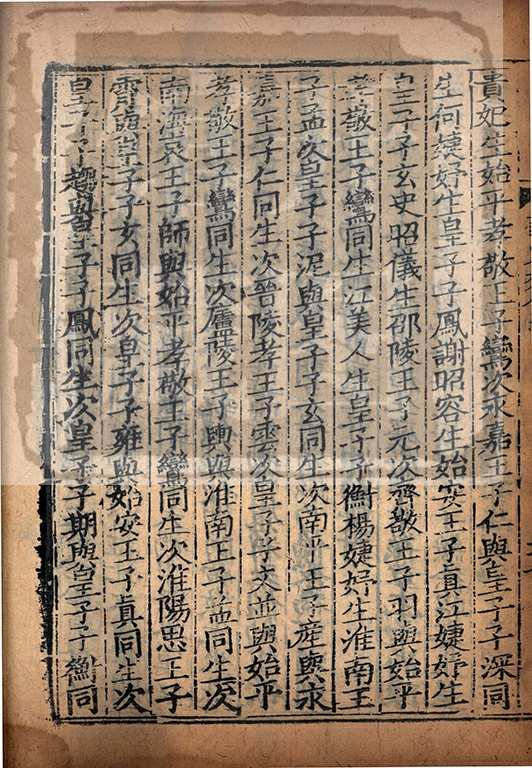 貴妃生始平孝敬王子鸞次永嘉王子仁與皇子子深同
生何婕妤生皇子子鳳謝昭容生始安王子真江婕妤生
皇子子玄史昭儀生邵陵王子元次齊敬王子羽與始平
孝敬王子鸞同生江美人生皇子子衡楊婕妤生淮南王
子孟次皇子子泥與皇子子玄同生次南平王子產與永
嘉王子仁同生次晉陵孝王子雲次皇子子文並與始平
孝敬王子鸞同生次廬陵王子輿與淮南王子孟同生次
南海哀王子師與始平孝敬王子鸞同生次淮陽思王子
霄與皇子子玄同生次皇子子雍與始安王子真同生次
皇子子趨與皇子子鳳同生次皇子子期與皇子子衡同